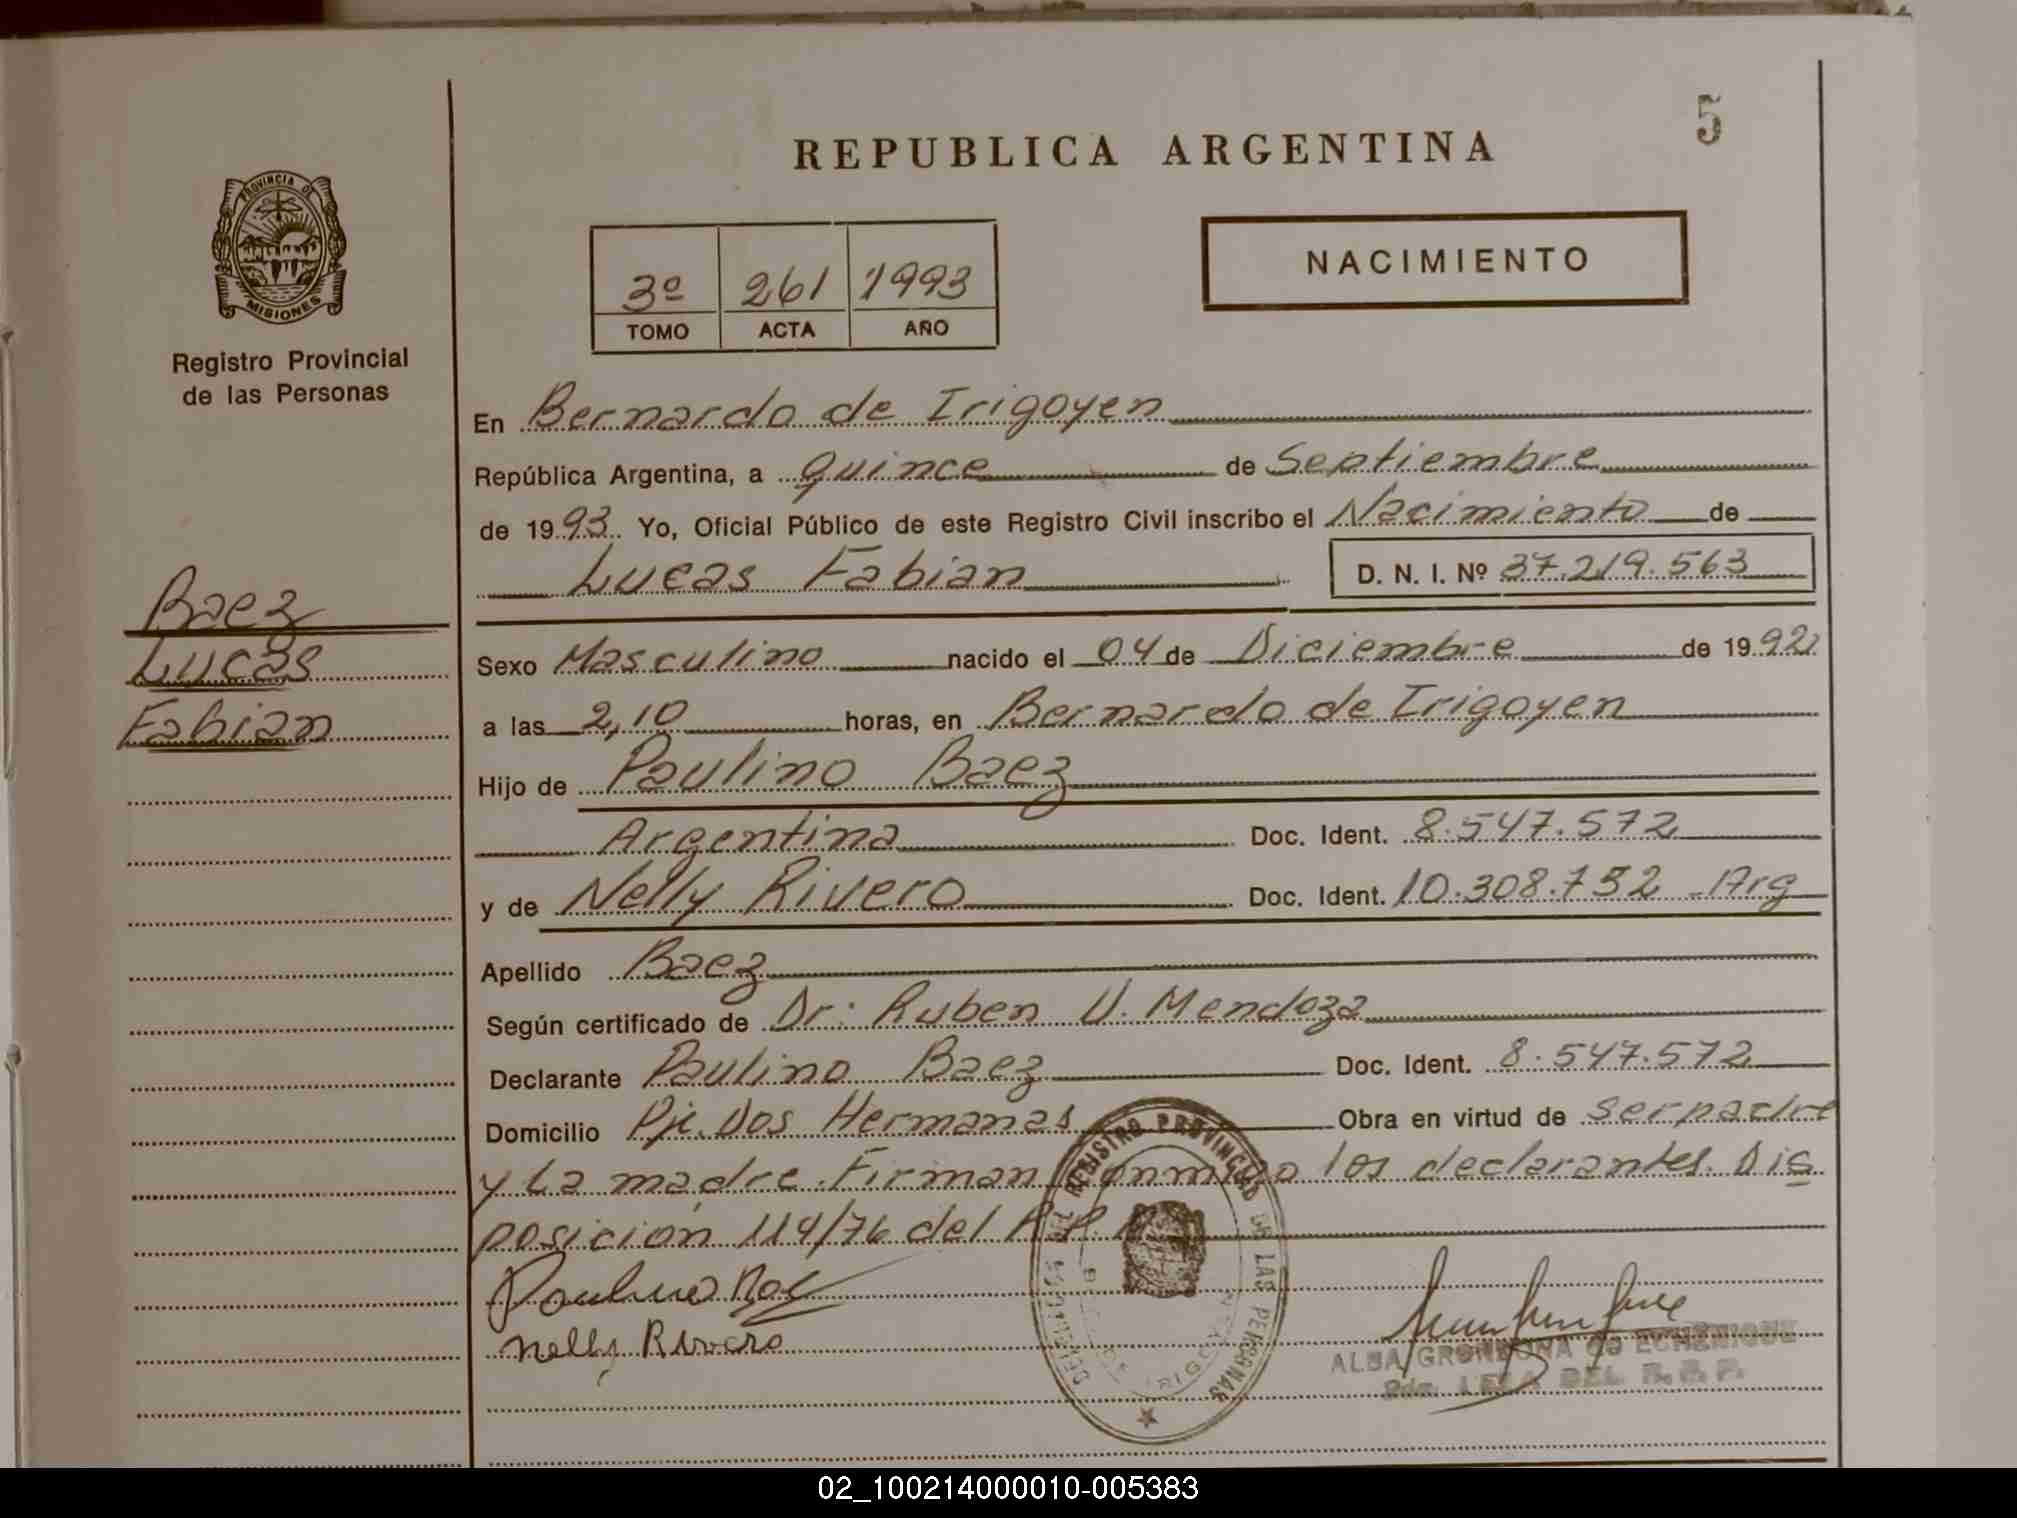 5
REPUBLICA ARGENTINA
PROVINCIA DE
MISIONES
Registro Provincial
de las Personas
3º 261 1993
TOMO ACTA AÑO
NACIMIENTO
Baez
Lucas
Fabian
En Bernardo de Irigoyen
República Argentina, a quince de Septiembre
de 1993. Yo, Oficial Público de este Registro Civil inscribo el Nacimiento de
Lucas Fabian D. N. I. Nº 37.219.563
Sexo Masculino nacido el 04 de Diciembre de 1992
a las 2,10 horas, en Bernardo de Irigoyen
Hijo de Paulino Baez
Argentina Doc. Ident. 8.547.572
y de Nelly Rivero Doc. Ident. 10.308.752 - Arg
Apellido Baez
Según certificado de Dr: Ruben U. Mendoza
Declarante Paulino Baez Doc. Ident. 8.547.572
Domicilio Pje. Dos Hermanas Obra en virtud de ser padre
y La madre. Firman conmigo los declarantes. Dis
posición 114/76 del R.P.
REGISTRO PROVINCIAL DE LAS PERSONAS
Nelly Rivero
ALBA GRONDONA de ECHENIQUE
DEL R. P. P.
02_100214000010-005383